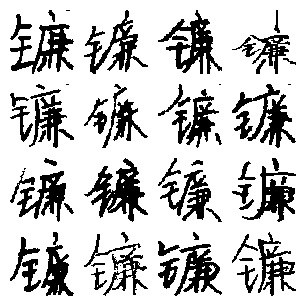 镰镰镰镰
镰镰镰镰
镰镰镰镰
镰镰镰镰